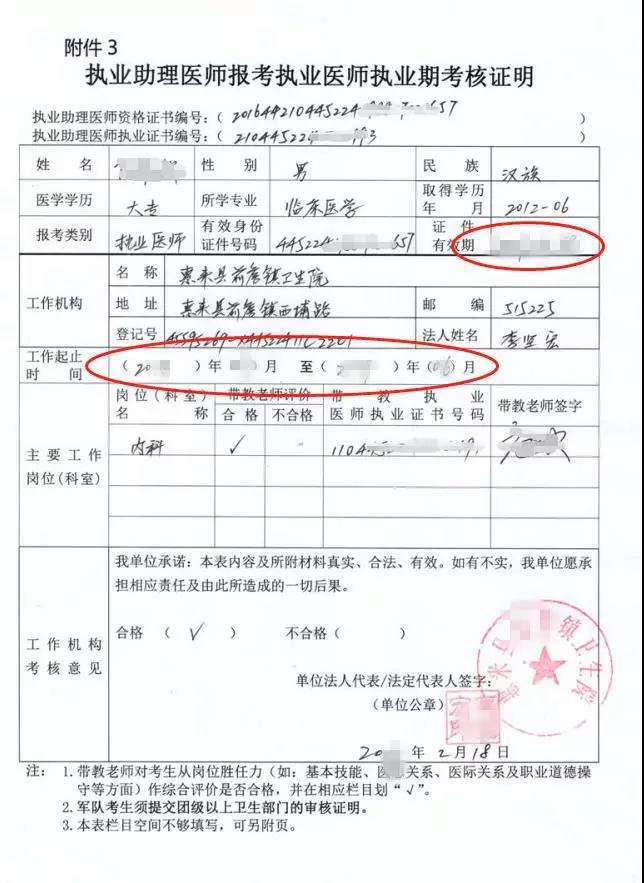 附件 3
执业助理医师报考执业医师执业期考核证明
执业助理医师资格证书编号：（ 201644210445224 657 ）
执业助理医师执业证书编号：（ 210445224 93 ）
姓 名 性 别 男 民 族 汉族
医学学历 大专 所学专业 临床医学 取得学历年 月 2012-06
报考类别 执业医师 有效身份证件号码 445224 657 证 件有效期
工作机构
名 称 惠来县前詹镇卫生院
地 址 惠来县前詹镇西埔路 邮 编 515225
登记号 法人姓名 李坚宏
工作起止时 间 （ 20 ）年 月 至（ ）年（06）月
主要工作岗位(科室)
岗位(科室)名 称 带教老师评价 合 格 不合格 带 教 执 业医师执业证书号码 带教老师签字
内科 √ 1104
工作机构考核意见
我单位承诺：本表内容及所附材料真实、合法、有效。如有不实，我单位愿承
担相应责任及由此所造成的一切后果。
合格 （ √ ） 不合格（ ）
单位法人代表/法定代表人签字：
（单位公章）
20 年 2月18日
注： 1. 带教老师对考生从岗位胜任力（如：基本技能、医 关系、医际关系及职业道德操
守等方面）作综合评价是否合格，并在相应栏目划“√”。
2. 军队考生须提交团级以上卫生部门的审核证明。
3. 本表栏目空间不够填写，可另附页。